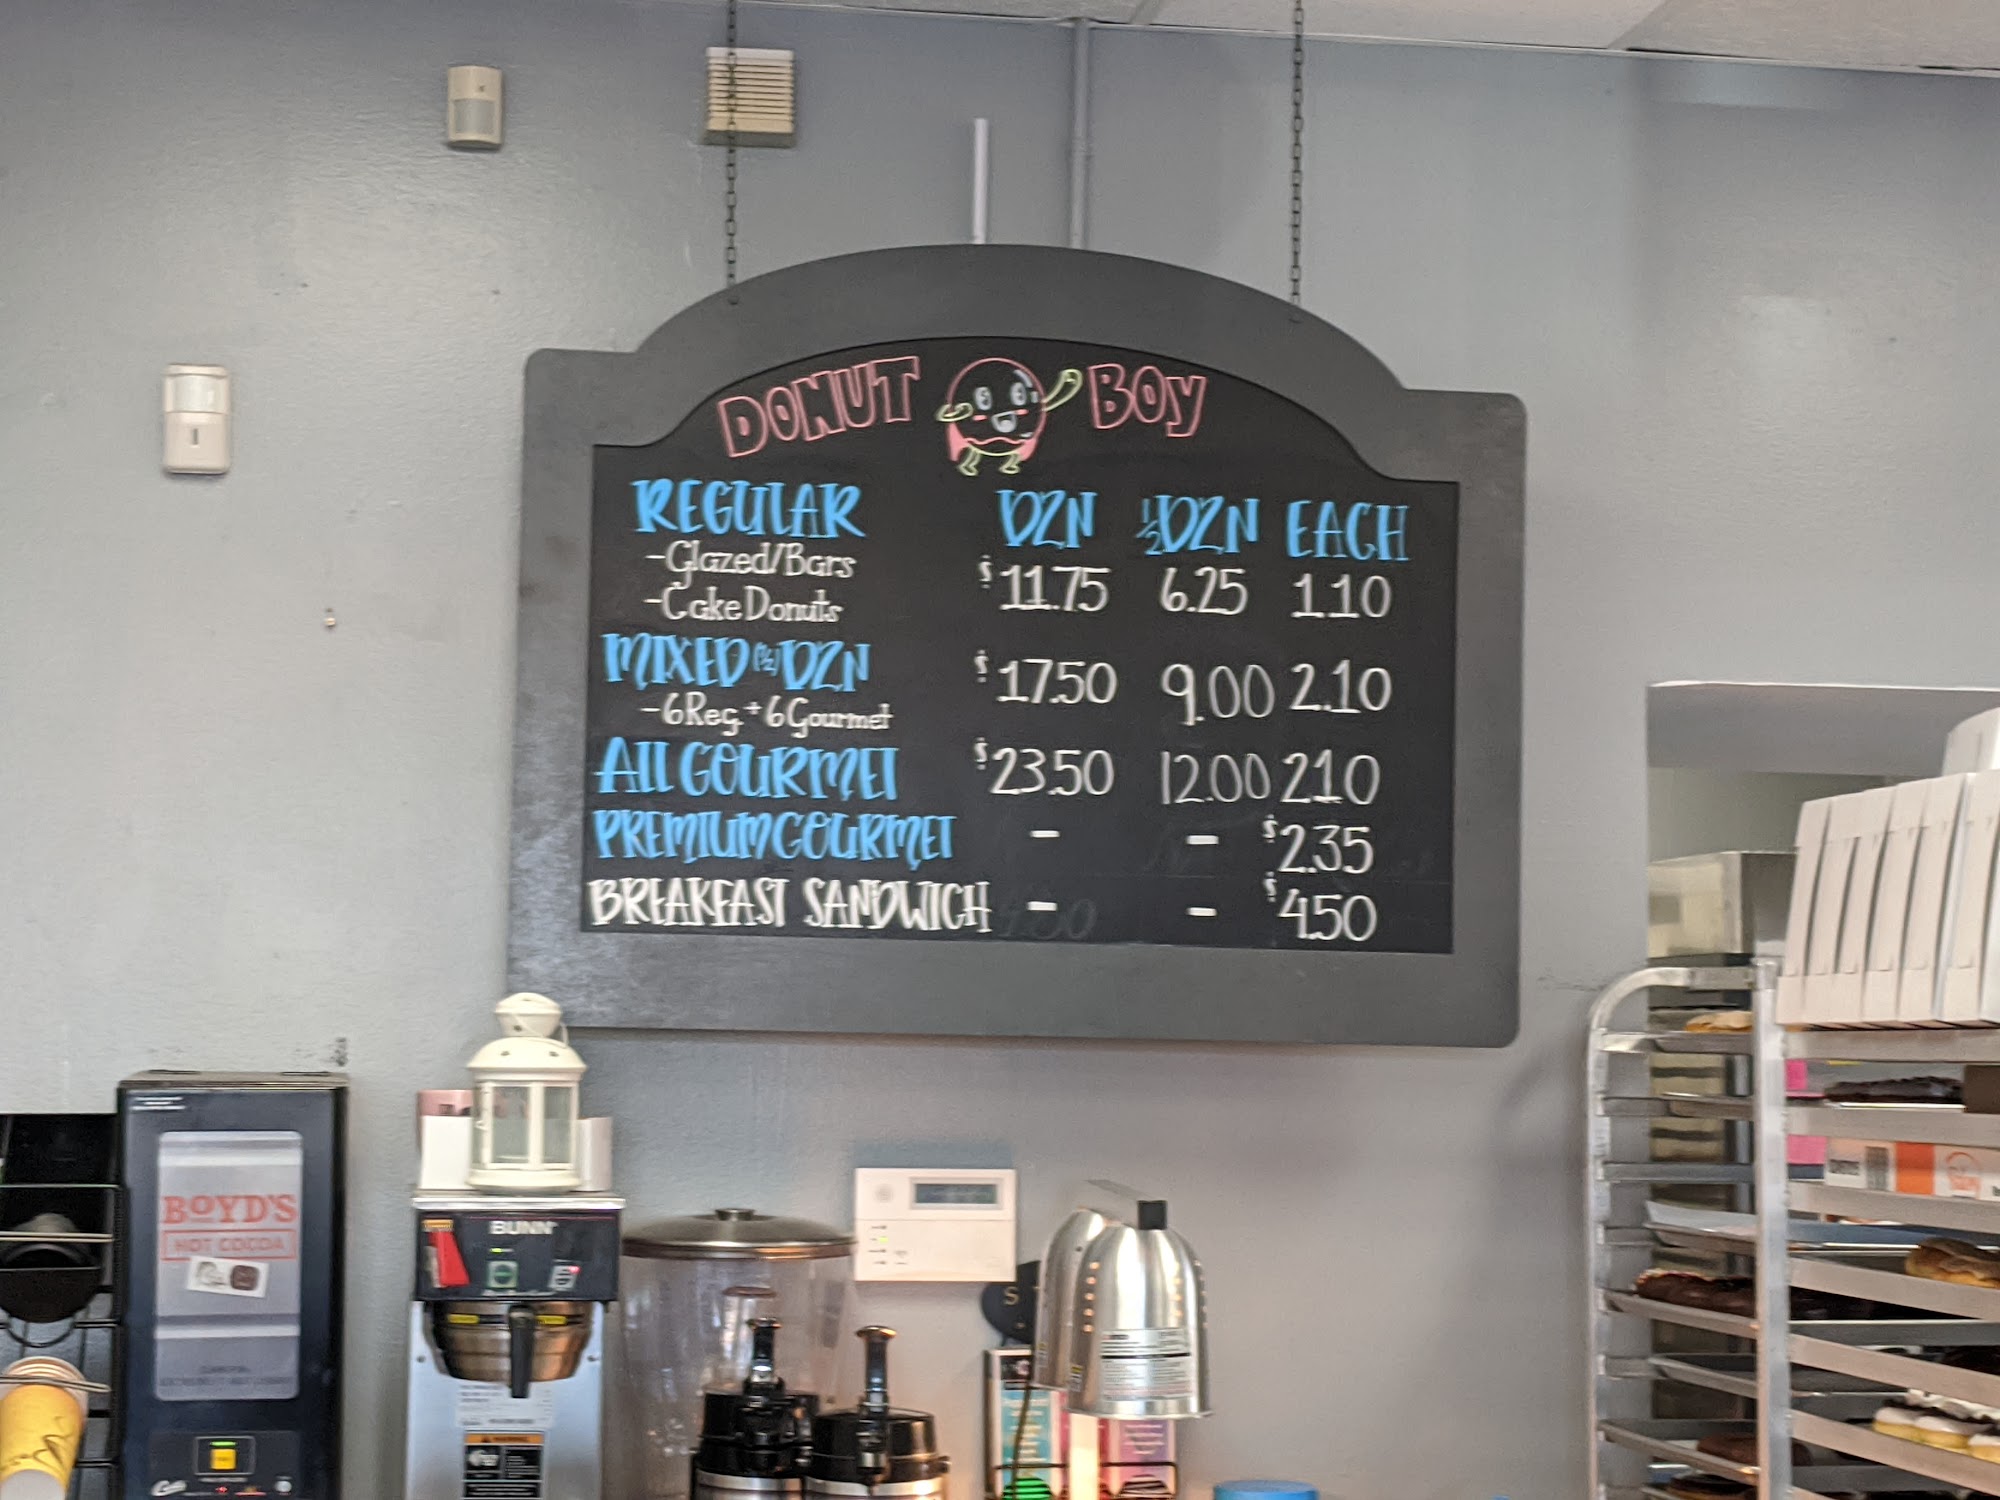 DONUT BOY
REGULAR DZN ½DZN EACH
-Glazed/Bars
$11.75 6.25 1.10
-Cake Donuts
MIXED (½) DZN $17.50 9.00 2.10
-6 Reg. + 6 Gourmet
ALL GOURMET $23.50 12.00 2.10
PREMIUM GOURMET - - $2.35
BREAKFAST SANDWICH - - $4.50
BOYD'S
HOT COCOA
BUNN
WARNING
Curtis